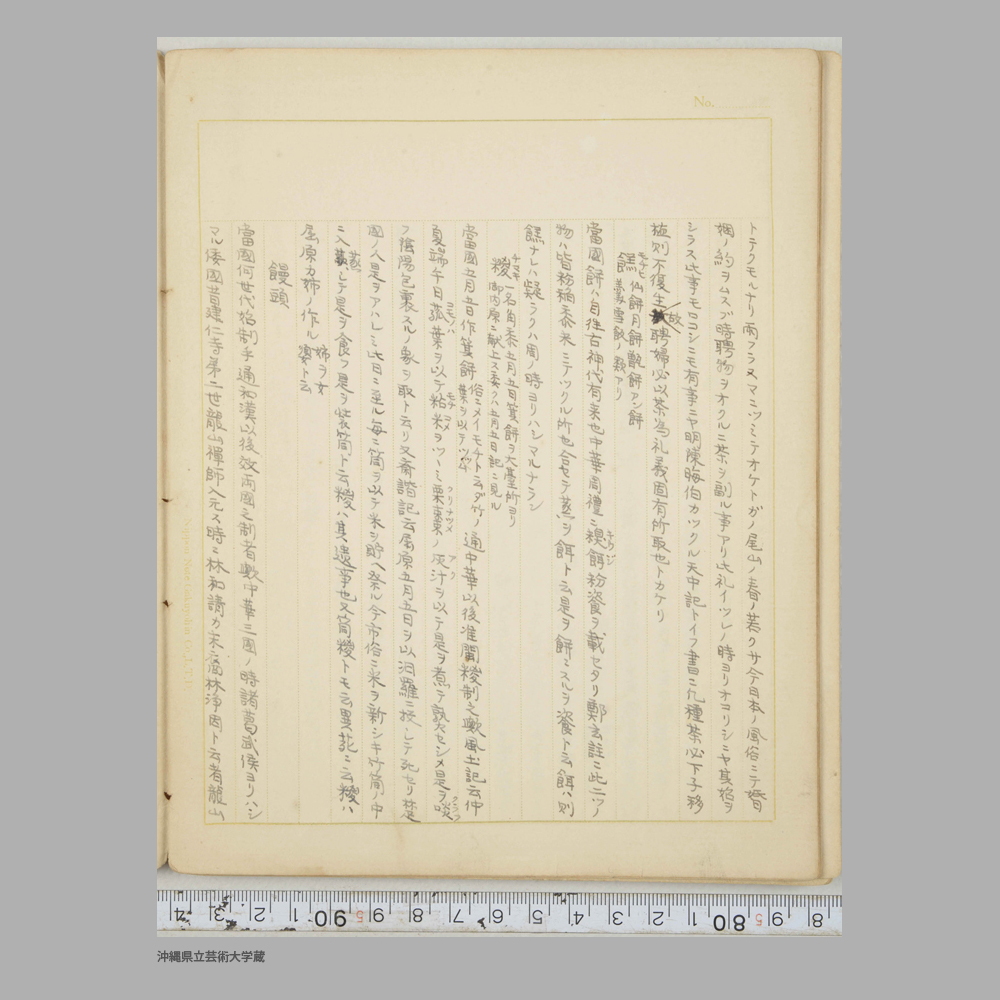 No.
トテクモルナリ雨フラヌマニツミテオケトガノ尾山ノ春ノ若クサ今日本ノ風俗ニテ婚
姻ノ約ヲムスブ時聘物ヲオクルニ茶ヲ副ル事アリ此礼イツレノ時ヨリオコリシニヤ其始ヲ
シラス此事モロコシニモ有事ニヤ明陳晦伯カツクル天中記トイフ書ニ凡種茶必下子移
植則不復生故聘婦必以茶為礼義固有所取也トカケリ
餻 モチヒ 仙餅月餅甑餅アン餅
養雪餃ノ類アリ
當國餅ハ自往古神代有来也中華周禮ニ糗餌粉餈ヲ載セタリ鄭玄註ニ此二ツノ
物ハ皆粉稲黍米ニテツクル所也合セテ蒸ヲ餌ト云是ヲ餅ニスルヲ餈ト云餌ハ則
餻ナレハ疑ラクハ周ノ時ヨリハシマルナラン
糉 チマキ 一名角黍五月五日䈽餅ヲ大臺所ヨリ
御内原ニ献上ス委ク八五月五日記ニ見ル
當國五月五日作䈽餅 俗ニメイモチト云ダ竹ノ葉ヲ以テツツム 通中華以後准關糉制之歟風土記云仲
夏端午日菰葉ヲ以テ粘米ヲツヽミ栗棗ノ灰汁ヲ以テ是ヲ煮テ熟セシメ是ヲ啖
フ陰陽包裹スルノ象ヲ取ト云リ又齊諧記云屈原五月五日ヲ以汨羅ニ投シテ死セリ楚
國ノ人是ヲアハレミ此日ニ至ル毎ニ筒ヲ以テ米ヲ貯ヘ祭ル今市俗ニ米ヲ新シキ竹筒ノ中
ニ入蒸シテ是ヲ食フ是ヲ装筒ト云糉ハ其遺事也又筒糉トモ云異苑ニ云糉ハ
屈原カ姉ノ作ル 姉ヲ女嬃ト云
饅頭
當國何世代始制乎通和漢以後效両國之制者歟中華三國ノ時諸葛武侯ヨリハシ
マル倭國昔建仁寺第二世龍山禪師入元ス時ニ林和靖カ末裔林浄因ト云者龍山
沖縄県立芸術大学蔵